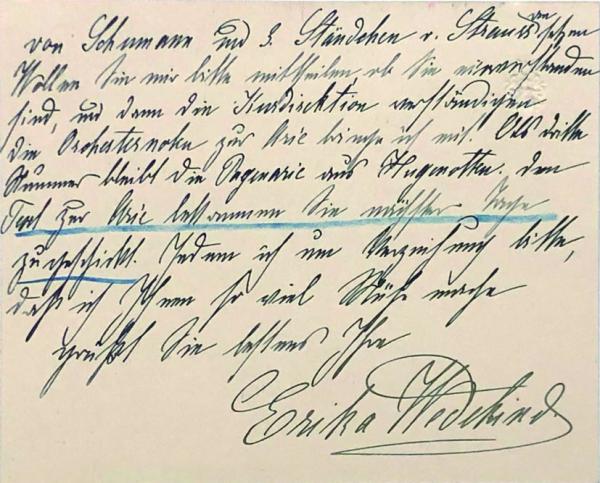 von Schumann und 3. Ständchen v. Strauss an setzen
Wollen Sie mir bitte mittheilen, ob Sie einverstanden
sind, und dann die Kurdirektion verständigen
die Orchesternoten zur Arie bringe ich mit. Als dritte
Nummer bleibt die Pagenarie aus Hugenotten. Den
Text zur Arie bekommen Sie nächster Tage
zugeschickt. Indem ich um Verzeihung bitte,
daß ich Ihnen so viel Mühe mache
grüßt Sie bestens Ihre
Erika Wedekind